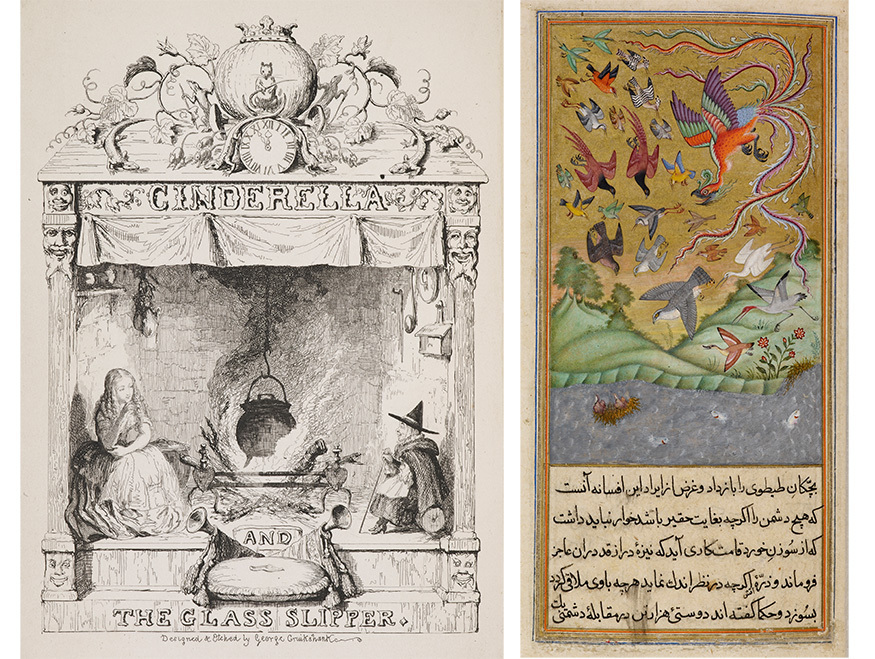 CINDERELLA
AND
THE GLASS SLIPPER.
Designed & Etched by George Cruikshank
بچکان طیطوی را بازداد و غرض از ایراد این افسانه آنست
که هیچ دشمن را اکرچه بغایت حقیر باشد خوار نباید داشت
که از سوزن خورد قامت کاری آید که نیزهٔ دراز قد در ان عاجز
فروماند و ذرّهٔ آتش اکرچه در نظر اندك نماید هرچه باوی ملاقی کردد
بسوزد و حکما کفته اند دوستی هزار تن در مقابلهٔ دشمنی یك